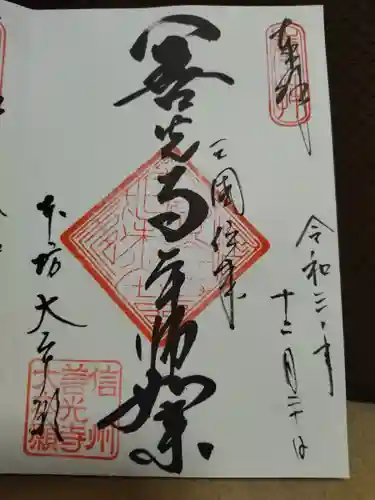 奉拝
令和三年
十二月二十日
三國傳来
善光寺如来
本坊 大本願
信州
善光寺
大本願